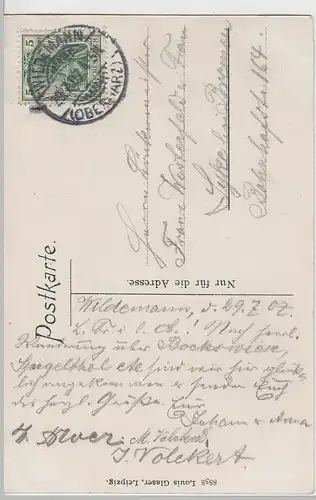 WILDEMANN
(OBERHARZ)
5 5
Postkarte.
Nur für die Adresse.
Herrn
Franz Westerfeld u. Frau
Syke bei Bremen
Bahnhofstr.
Wildemann, d. 29.7.07.
L. Fr. i. l. A.! Nach herrl.
Wanderung über Bockswiese,
Spiegelthal etc sind wir hier glück-
lich angekommen u. senden Euch
die herzl. Grüße. Eure
Johann u. Anna
M. Volckert
J. Volckert.
8898 Louis Glaser, Leipzig.